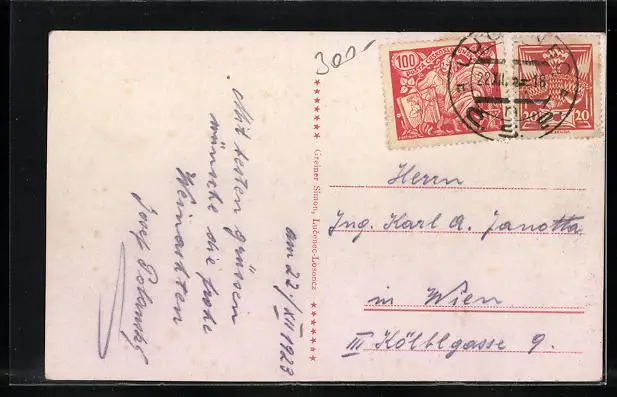 300.-
100
POŠTA ČESKOSLOVENSKÁ
22.XII. 18
20 20
Mit besten grüssen
wünsche die frohe
Weinachten
Josef
am 22/XII 1923
Greiner Simon, Lučenec-Losoncz
Herrn
Ing. Karl A. Janotta
in Wien
III Kölblgasse 9.